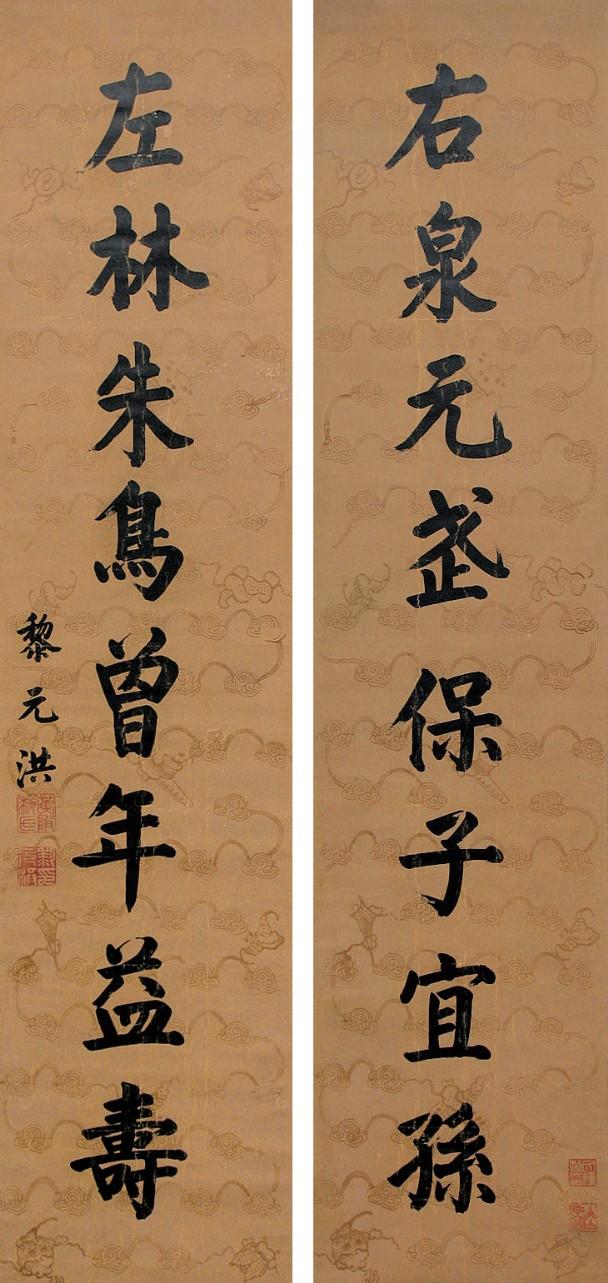 右泉元武保子宜孫
左林朱鳥曾年益壽
黎元洪